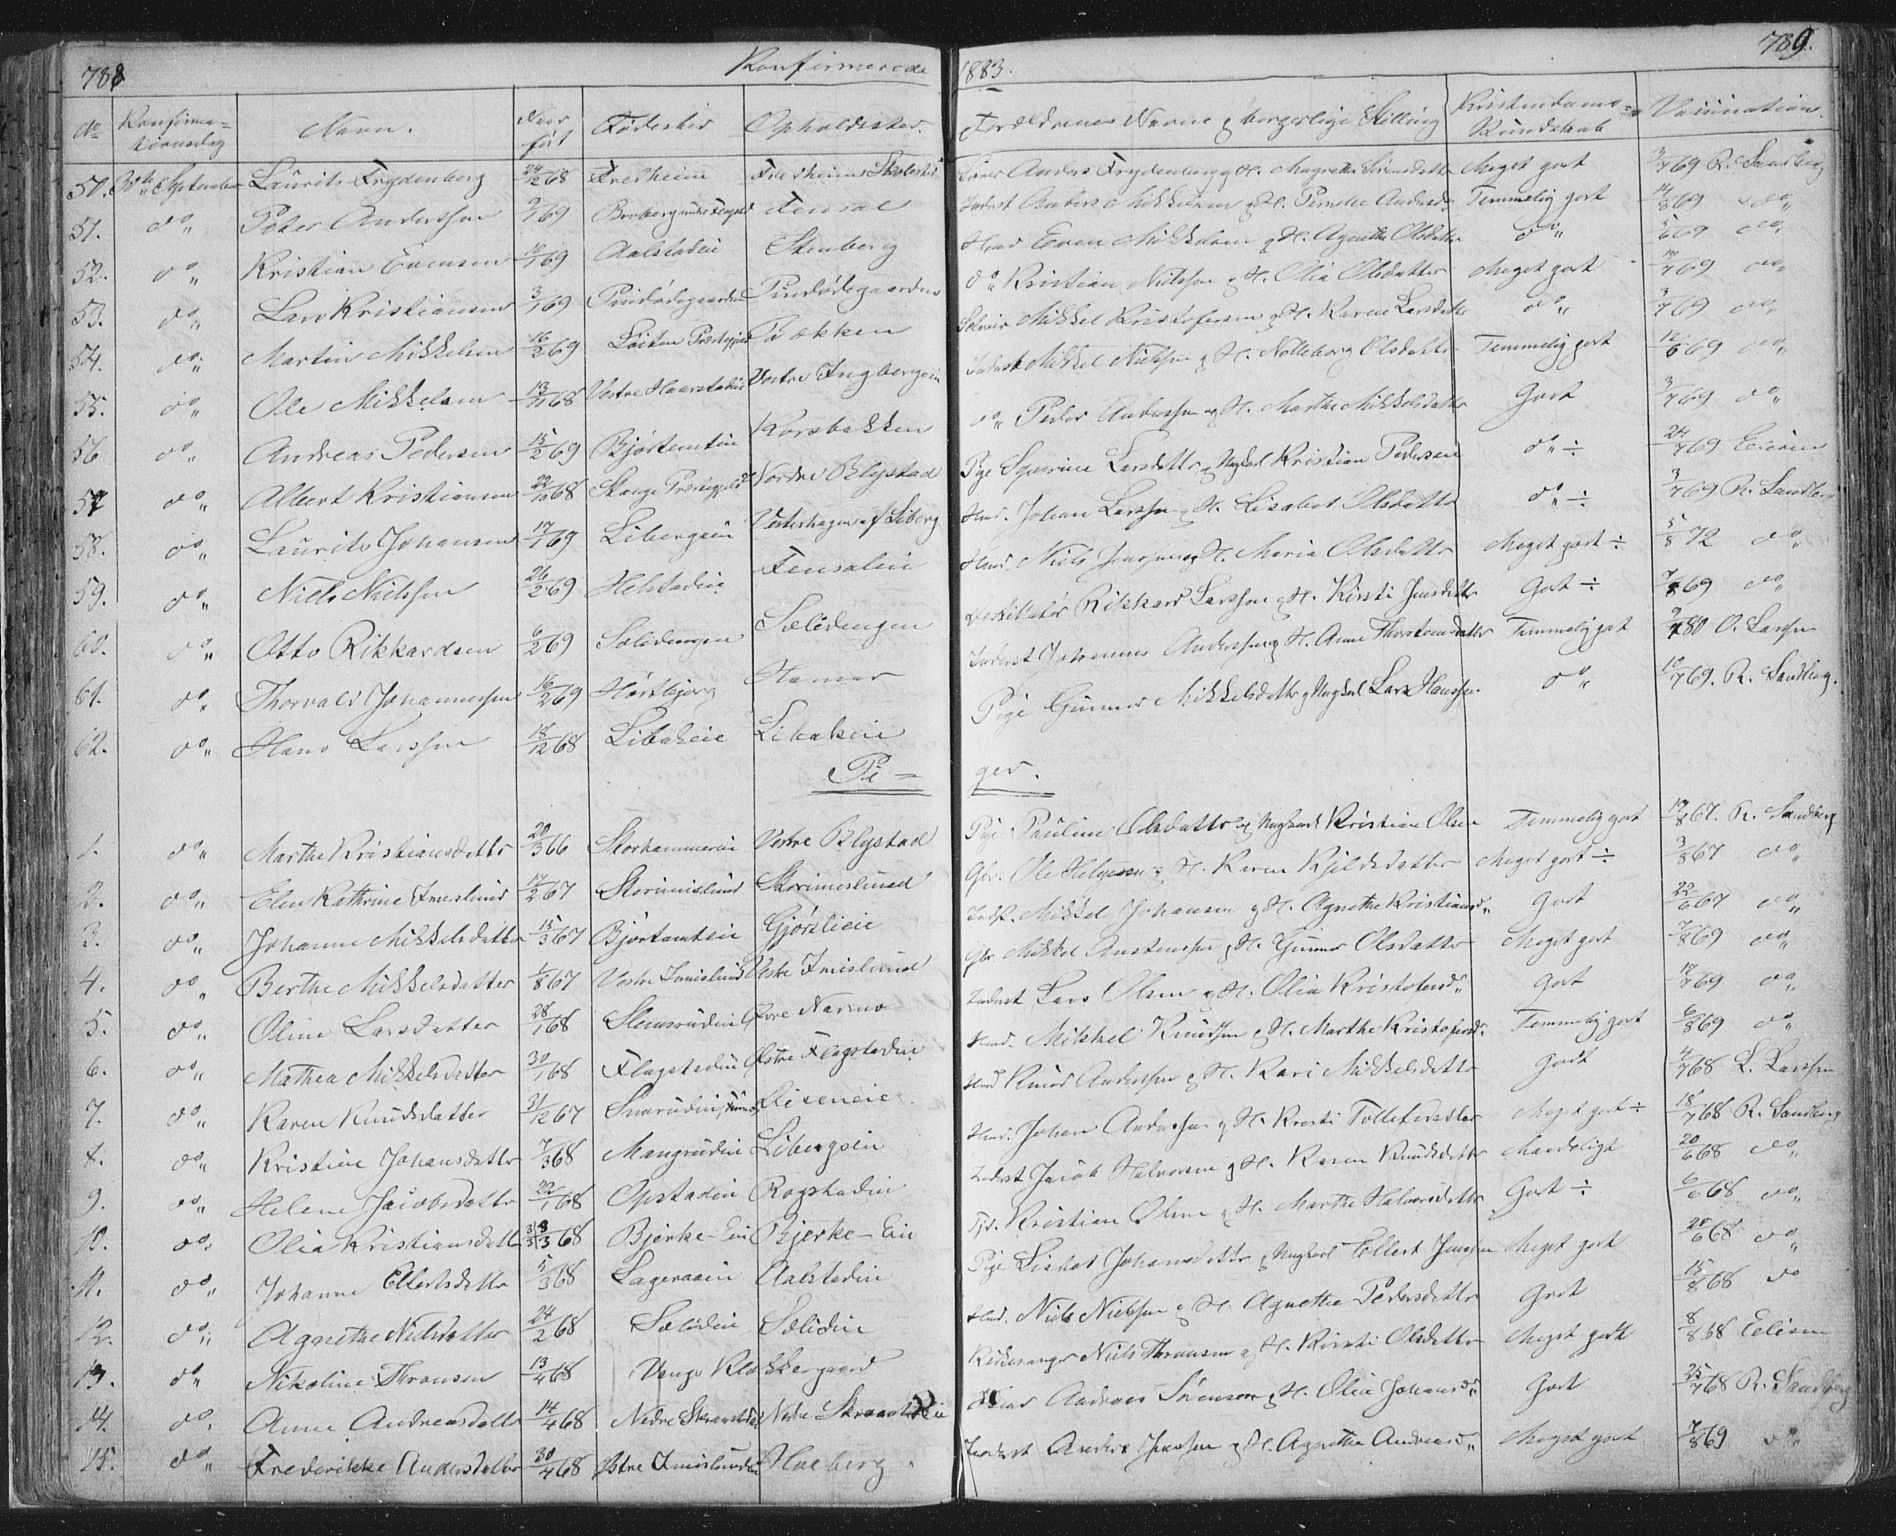 788 Konfirmerede 1883. 789.
No Konfirma= tionsdag Navn. Naar født Fødested Opholdssted. Forældrenes Navne og borgerlige Stilling Kristendoms= Kundskab Vaccination.
50. 30te September Laurits Frydenberg 24/12 68 Fredheim Fredheim Anders Frydenberg og H. Magrethe Sørensdatter Meget godt 3/7 69 R. Sandberg
51. do Peter Anderssen 9/1 69 Fensal Inderst Anders Mikkelsen og H. Pernelle Andersd. Temmelig godt 14/8 69 do
52. do Kristian Evensen 10/1 69 Aalstadeie Stenberg Huusm. Even Mikkelsen og H. Agnethe Olsdatter do 5/6 69 do
53. do Lars Kristiansen 3/1 69 Prindødegaarden Prindødegaarden do Kristian Nielssen og H. Olia Olsdatter Meget godt 17/7 69 do
54. do Martin Mikkelsen 16/2 69 Løiten Præstegjeld Bækken Mikkel Kristofersen og H. Karen Larsdatter do 3/7 69 do
55. do Ole Mikkelsen 13/11 68 Vestre Haarstadeie Vestre Imgbergeie Inderst Mikkel Nielssen og H. Nelleborg Olsdatter Temmelig godt 12/6 69 do
56 do Andreas Pedersen 15/2 69 Bjørtomteie Korsbakken do Peder Anderssen og H. Marthe Mikkelsdatter Godt 3/7 69 do
57 do Albert Kristiansen 22/10 68 Stange Præstegjeld Nordre Blystad Pige Syverine Larsdatter og Ungkarl Kristian Pedersen do ÷ 24/7 69
58. do Laurits Johansen 17/1 69 Libergeie Vesterhagen af Liberg Huusm. Johan Larssen og H. Lisabet Olsdatter do ÷ 3/7 69 R. Sandberg
59. do Niels Nielssen 26/2 69 Helstadeie Fensaleie Huusm. Niels Jenssen og H. Maria Olsdatter Meget godt ÷ 5/8 72 do
60. do Otto Rikkardsen 6/2 69 Sælidengen Sælidengen Destillatør Rikkard Larssen og H. Kirsti Jensdatter Godt ÷ 7/8 69 do
61. do Thorvald Johannessen 16/2 69 Høstbjerg Hamar Inderst Johannes Anderssen og H. Anne Thorstensdatter Temmelig godt 9/7 80 O. Larssen
62. do Hans Larssen 18/12 68 Libakeie Libakeie Pige Gunnor Mikkelsdatter og Ungkarl Lars Hanssen do 10/7 69. R. Sandberg.
Pi= ger.
1. do Marthe Kristiansdatter 20/3 66 Storhammereie Vestre Blystad Pige Pauline Olsdatter og Ungkarl Kristian Olsen Temmelig godt 19/8 67. R. Sandberg
2. do Elen Kathrine Imeslund 17/2 67 Skorimeslund Skorimeslund Gbr. Ole Helgesen og H. Karen Kjeldsdatter Meget godt ÷ 3/8 67 do
3. do Johanne Mikkelsdatter 15/3 67 Bjørtomteie Gjørslieie Inds. Mikkel Johansen og H. Agnethe Kristiansd. Godt 22/6 67 do
4. do Berthe Mikkelsdatter 1/8 67 Vestre Imislund Vestre Imislund Gbr. Mikkel Anstensen og H. Gunnor Olsdatter Meget godt 7/8 69 do
5. do Oline Larsdatter 28/1 68 Slemsrudeie Øvre Narmo Inderst Lars Olsen og H. Olia Kristofersd. Godt 17/7 69 do
6. do Mathea Mikkelsdatter 30/1 68 Flagstadeie Østre Flagstadeie Huusm. Mikkel Knudsen og H. Marthe Kristofersd. Temmelig godt 6/8 69 do
7. do Karen Knudsdatter 31/12 67 Smerudeie Diseneie Huusm. Knud Anderssen og H. Kari Mikkelsdatter Godt 4/7 68 L. Larssen
8. do Kristine Johansdatter 7/3 68 Mangrudeie Libergseie Huusm. Johan Anderssen og H. Kersti Tollefsdatter Meget godt ÷ 18/7 68 R. Sandberg
9. do Helene Jacobsdatter 22/1 68 Opstadeie Rogstadeie Inderst Jacob Halvorsen og H. Karen Knudsdatter Maadeligt 20/6 68 do
10. do Olia Kristiansdatter 31/3 68 Bjerke-Eie Bjerke-Eie Kristian Olsen og H. Marthe Halvorsdatter Godt ÷ 6/6 68 do
11. do Johanne Ellertsdatter 5/3 68 Lageraaeie Aalstadeie Pige Lisbet Johansdatter og Ungkarl Ellert Jenssen Meget godt 20/6 68 do
12. do Agnethe Nielsdatter 24/2 68 Sælideie Sælideie Huusm. Niels Nielssen og H. Agnethe Pedersdatter Godt 15/8 68 do
13. do Nikoline Thronsen 13/4 68 Vangs Klokkergaard Kirkesanger Niels Thronsen og H. Kirsti Olsdatter Meget godt 8/8 68
14. do Anne Andreasdatter 14/4 68 Nedre Skraastad Nedre Skraastadeie Andreas Sørensen og H. Olia Johansd. Godt 25/7 68 R. Sandberg
15. do Frederikke Andersdatter 30/4 68 Østre Imislundeie Huseberg Inderst Anders Jenssen og H. Agnethe Andersd. Meget godt 7/8 69 do